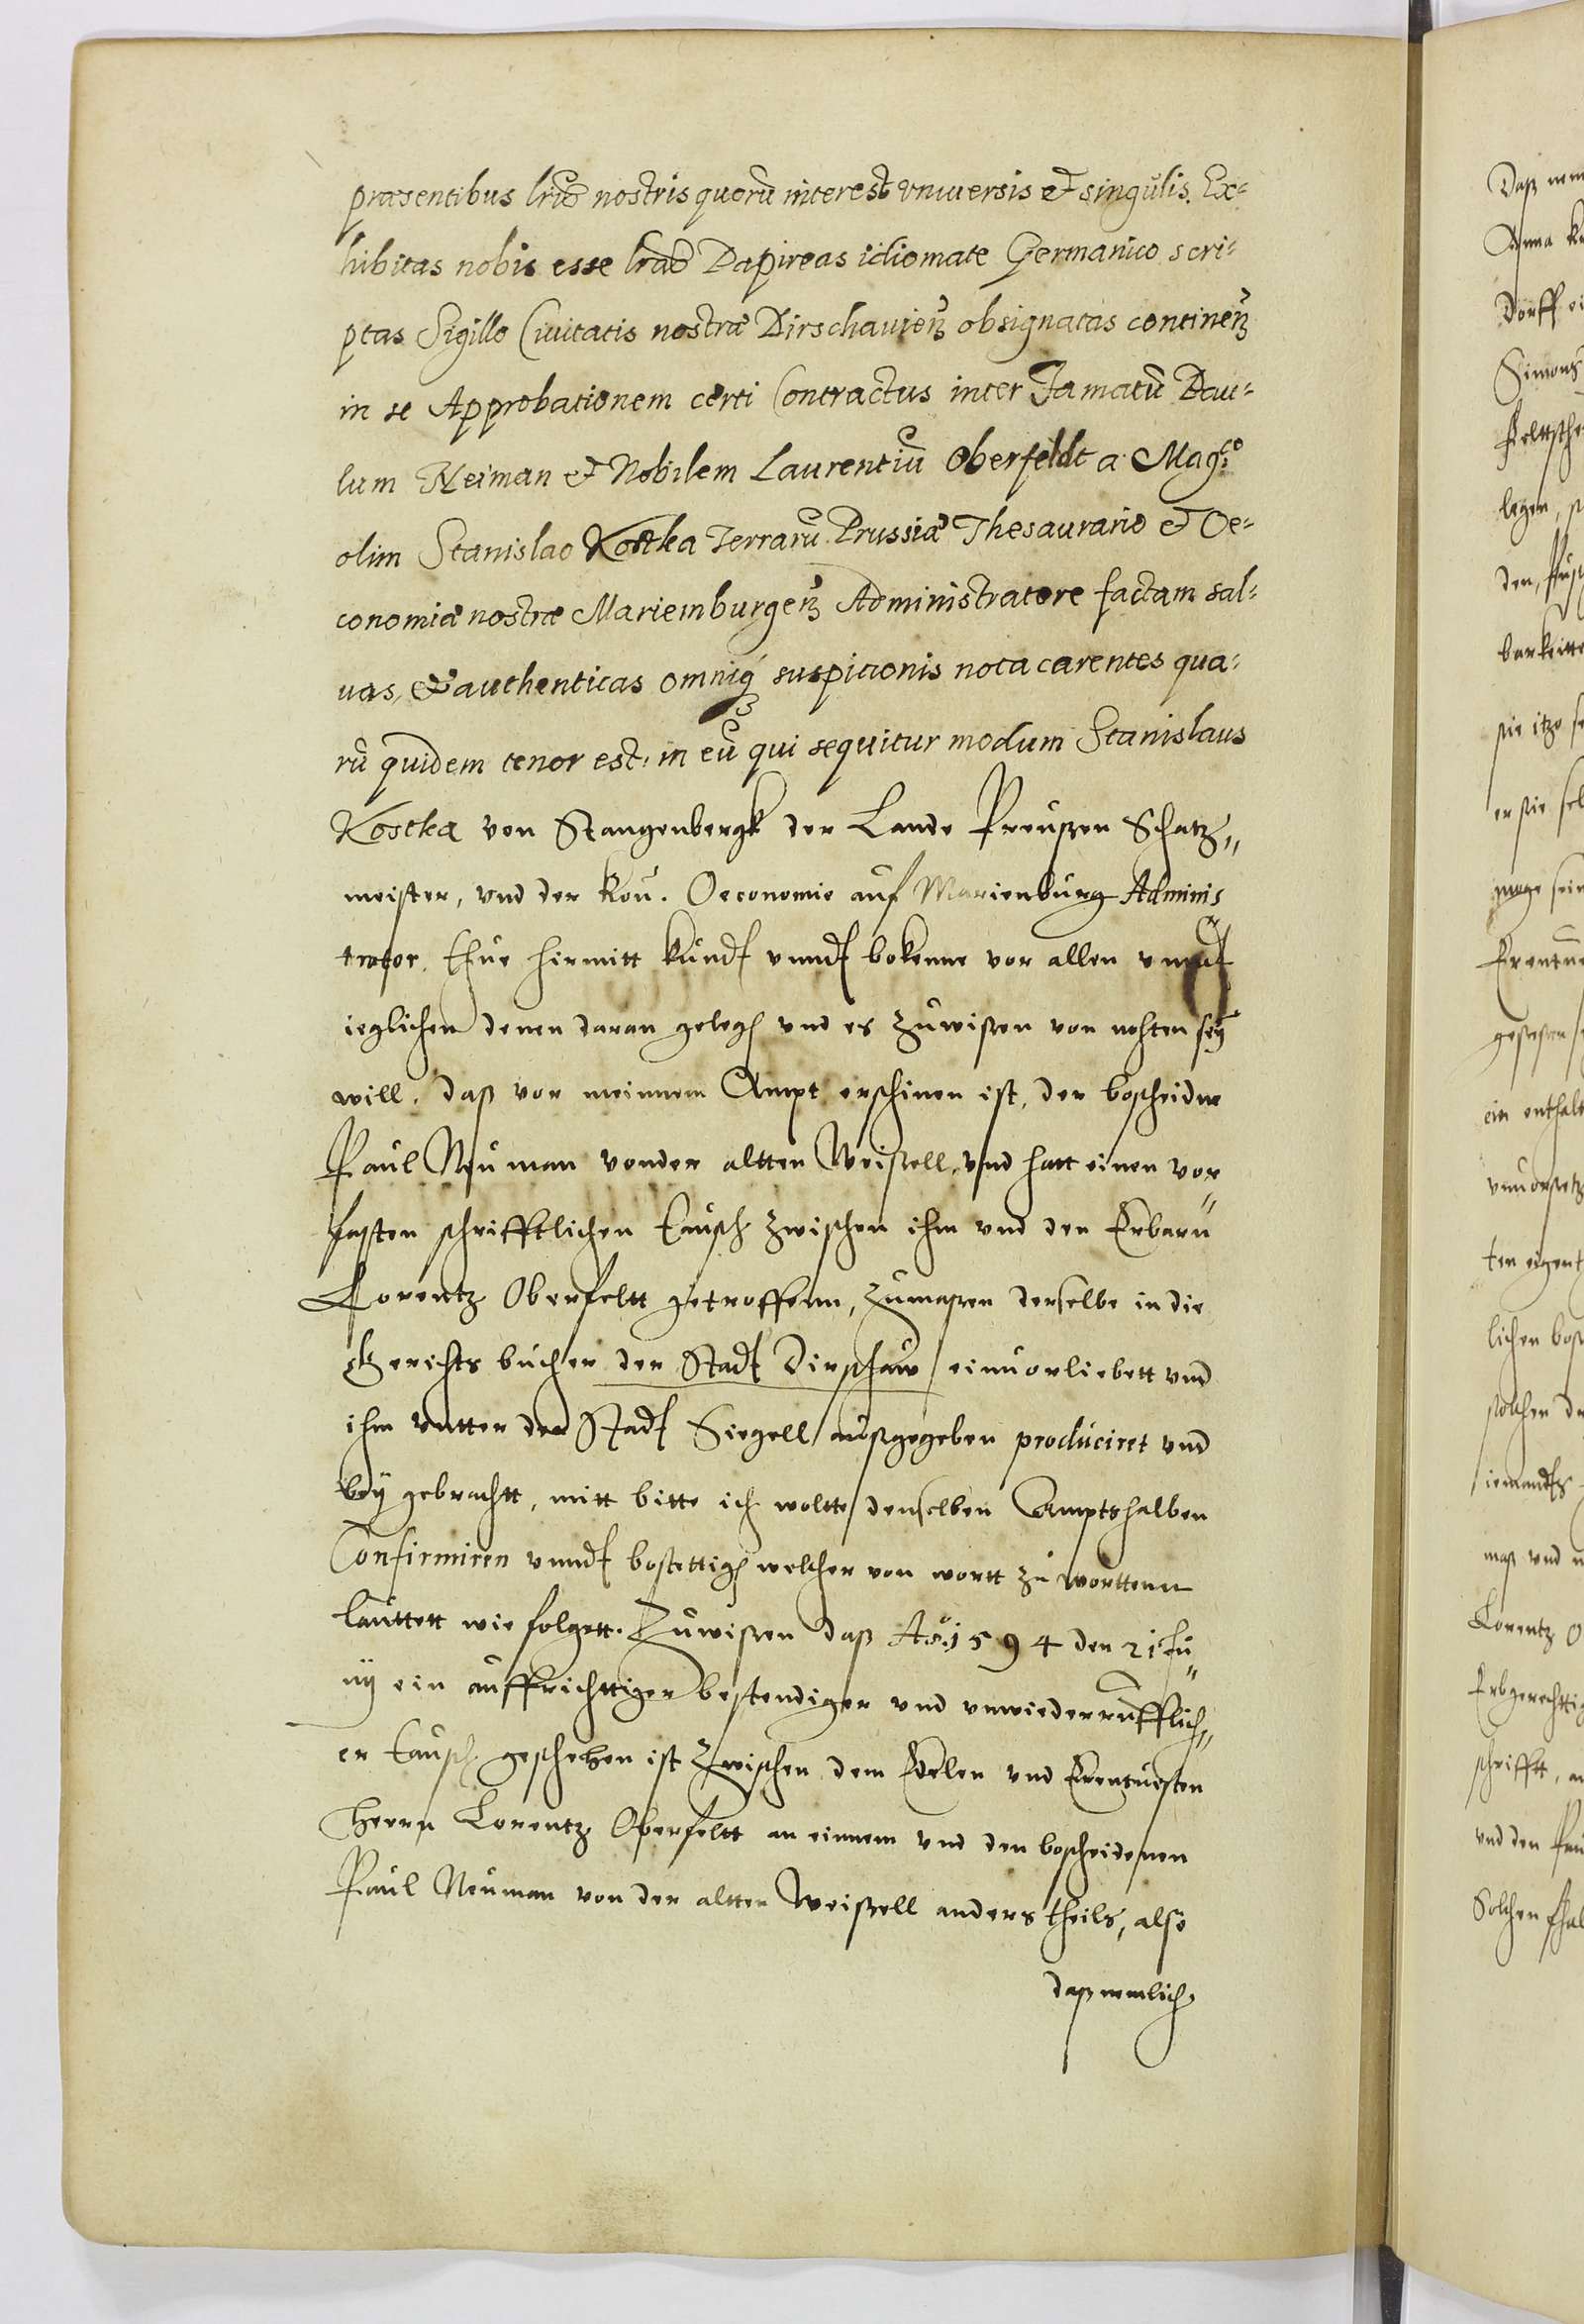 præsentibus lrῖs nostris quorū interest vniuersis et singulis. Ex-
hibitas nobis esse lras Papireas idiomate Germanico scri-
ptas Sigillo Ciuitatis nostræ Dirschauien̄ obsignatas continen̄
in se Approbationem certi Contractus inter Famatū Pau-
lum Neiman et Nobilem Laurentiū Oberfeldt a Magco
olim Stanislao Kostka Terrarū Prussiæ Thesaurario et Oe-
conomiæ nostræ Mariemburgen̄ Administratore factam sal-
uas, et authenticas omniq suspitionis nota carentes qua-
rū quidem tenor est, in eū qui sequitur modum Stanislaus
Kostka von Stangenbergk der Lande Preußen Schatz„
meister, vnd der Kön. Oeconomie auf Marienburg Adminis
trator. Thue hirmitt kundt vnndt bekenne vor allen vnndt
ieglichen denen daran gelegen vnd es zuwißen von nohten sey
will. daß vor meinnem Ampt erschinen ist, der bescheidne
Paul Neuman vonder altten Weißell, vnd hatt einen ver
fasten schrifftlichen Tausch zwischen ihm vnd den Erbarn
Lorentz Oberfeltt getroffenn, zumaßen derselbe in die
Gerichts bücher der Stadt Dirschaw einuorliebett vnd
ihm vntter der Stadt Siegell außgegeben produciret vnd
bey gebrachtt, mitt bitte ich woltte denselben Ampts halben
Confirmiren vnndt bestettigen welcher von wortt zu worttenn
lauttett wie folgett. Zuwißen daß Aō: 1594 den 21 Ju„
nij ein auffrichttiger bestendiger und unwiederrufflich„
er Tausch geschehen ist zwischen dem Edelen vnd Erentuesten
Herrn Lorentz Oberfeltt an einnem vnd den bescheidenen
Paul Neuman von der altten Weißell anders theils, also
daß nemlich
Daß nem
Anna
Dorff ei
Simons
legen, s
den,
barkeitt
sie itze
er sie sel
moge sein
Erentue
geseßen
ein enthalt
ten eigent
lichen bes
solchen de
iemandts
maß vnd
Lorentz O
Erbgerechttig
schrifftt, an
vnd den Pau
Solchen